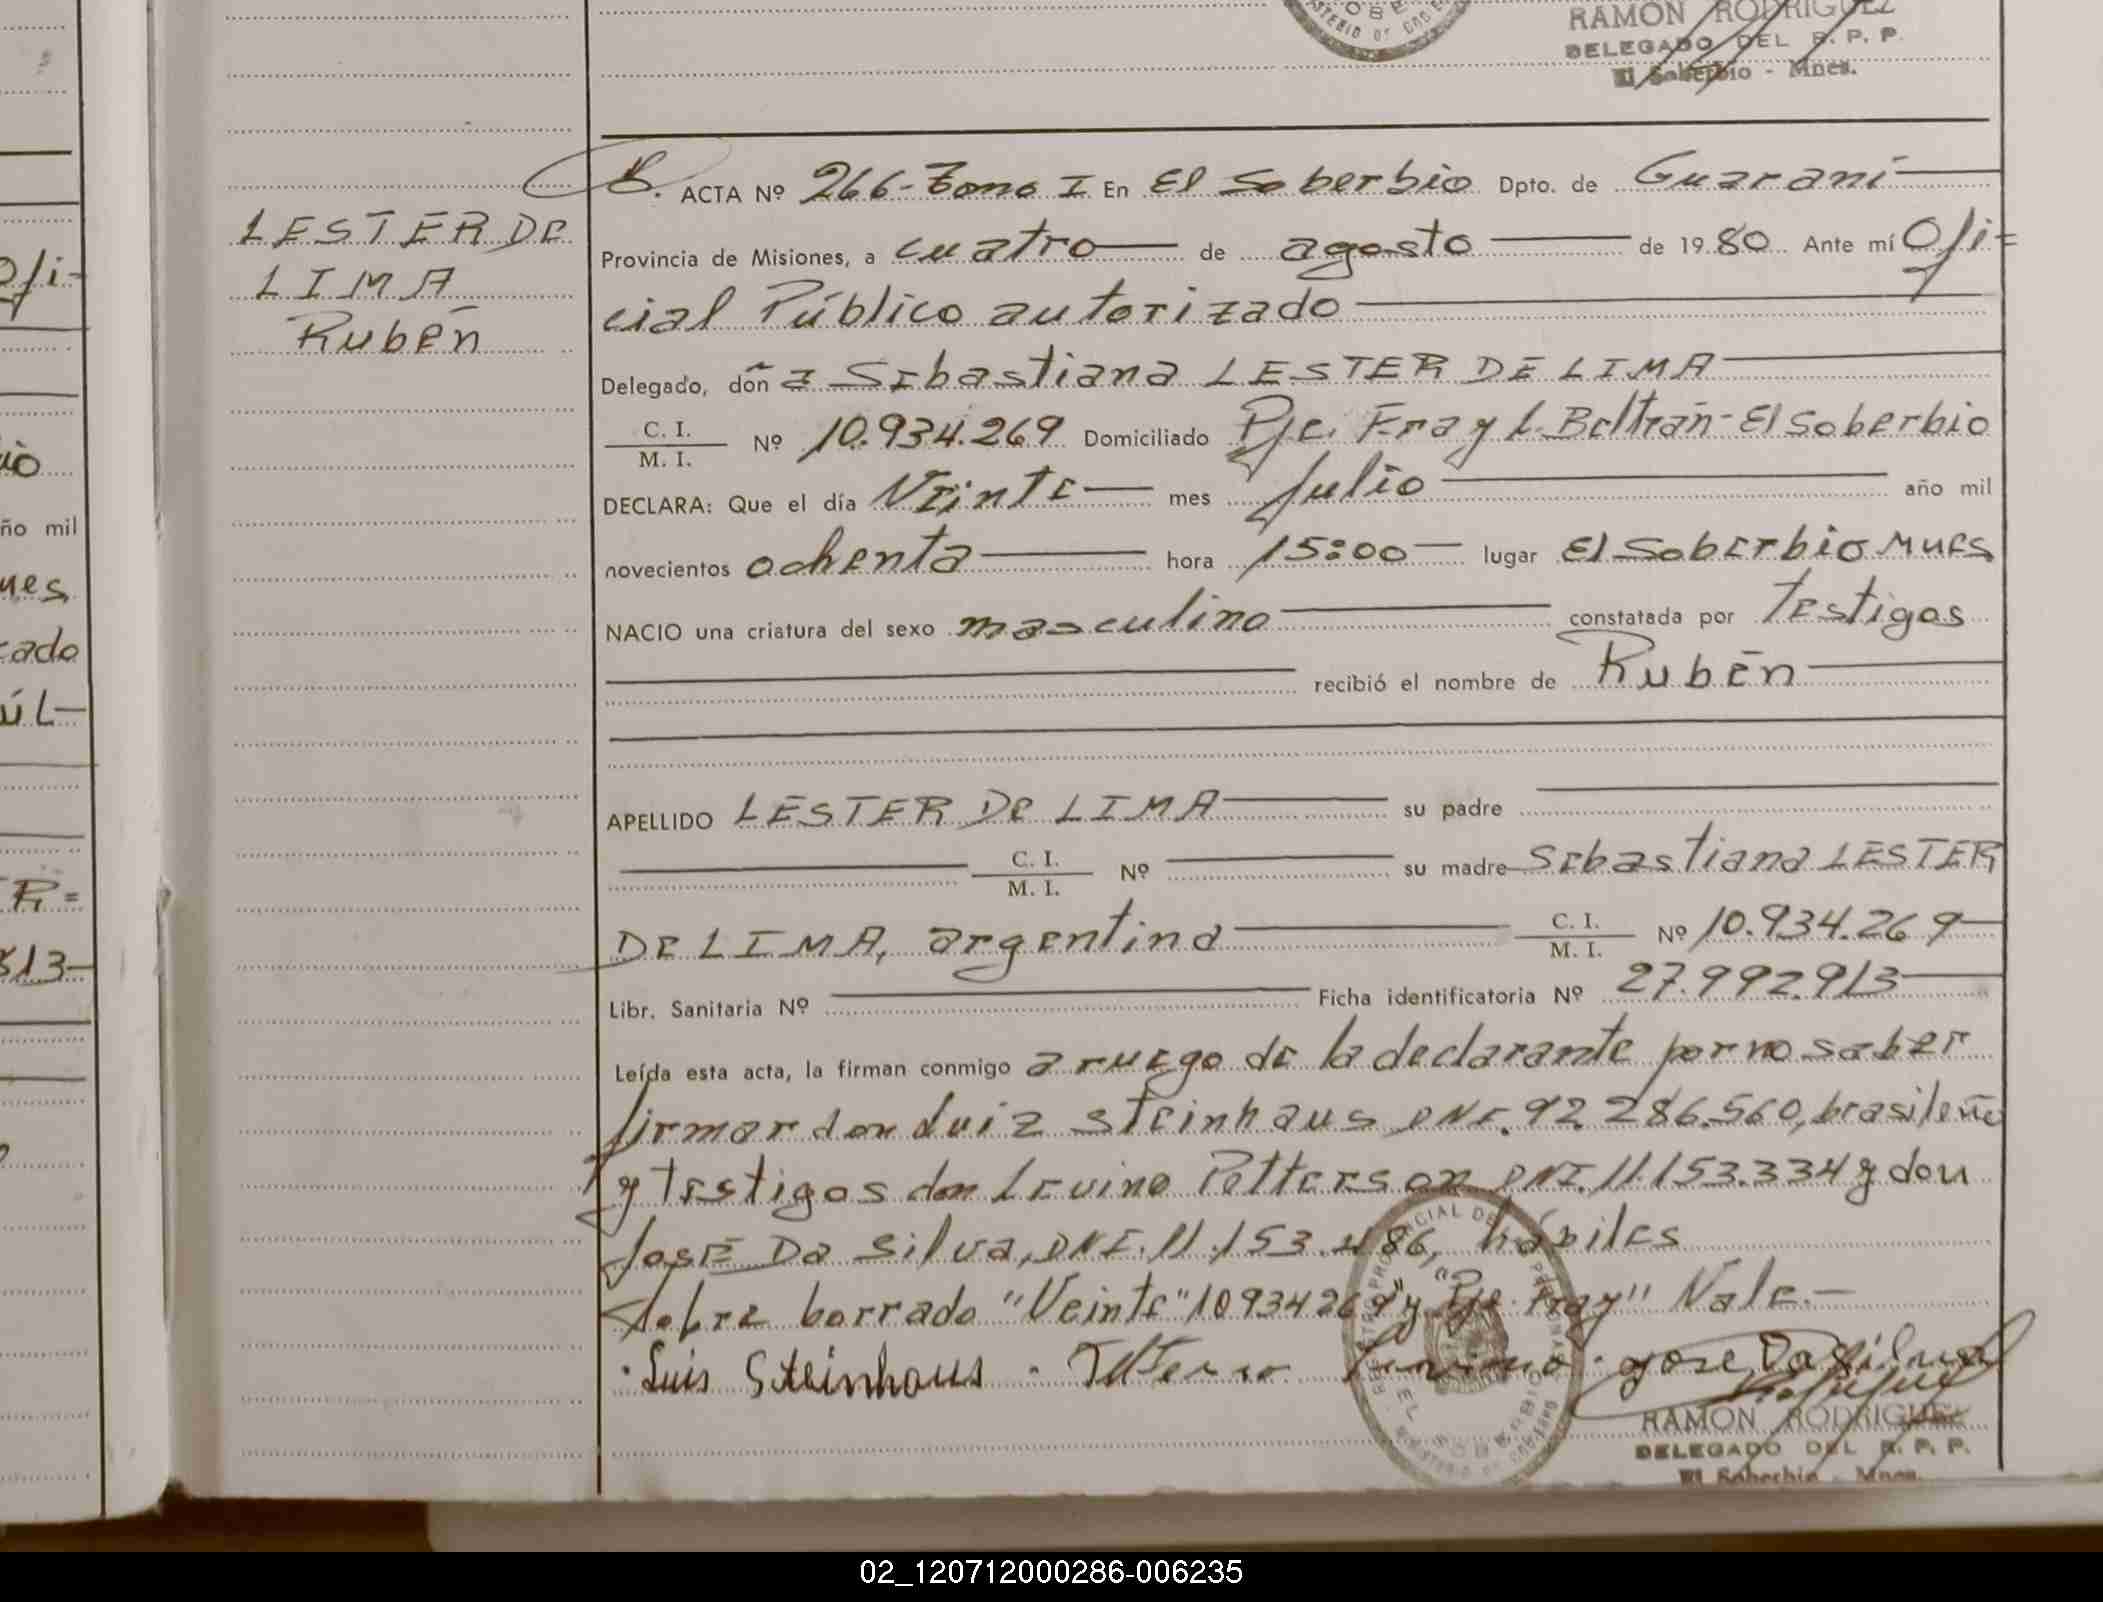 RAMON RODRIGUEZ
DELEGADO DEL R. P. P.
El Soberbio - Mnes.
LESTER DE
LIMA
Rubén
ACTA Nº 266-Tomo I En El Soberbio Dpto. de Guaraní
Provincia de Misiones, a cuatro de agosto de 1980 Ante mí Ofi=
cial Público autorizado
Delegado, doña Sebastiana LESTER DE LIMA
C. I.
M. I. Nº 10.934.269 Domiciliado Pje. Fray L. Beltrán-El Soberbio
DECLARA: Que el día Veinte mes Julio año mil
novecientos ochenta hora 15:00 lugar El Soberbio Mnes
NACIO una criatura del sexo masculino constatada por Testigos
recibió el nombre de Rubén
APELLIDO LESTER DE LIMA su padre
C. I.
M. I. Nº su madre Sebastiana LESTER
DE LIMA, argentina C. I.
M. I. Nº 10.934.269
Libr. Sanitaria Nº Ficha identificatoria Nº 27.992.913
Leída esta acta, la firman conmigo a ruego de la declarante por no saber
firmar don Luiz Steinhaus DNI. 92.286.560, brasileño
y testigos don Levino Petterson DNI. 11.153.334 y don
José Da Silva, DNI. 11.153.486, hábiles
Sobre borrado "Veinte" 10934269 y "Pje. Fray" Vale.-
Luis Steinhaus Jose Da Silva
RAMON RODRIGUEZ
DELEGADO DEL R. P. P.
El Soberbio - Mnes.
02_120712000286-006235